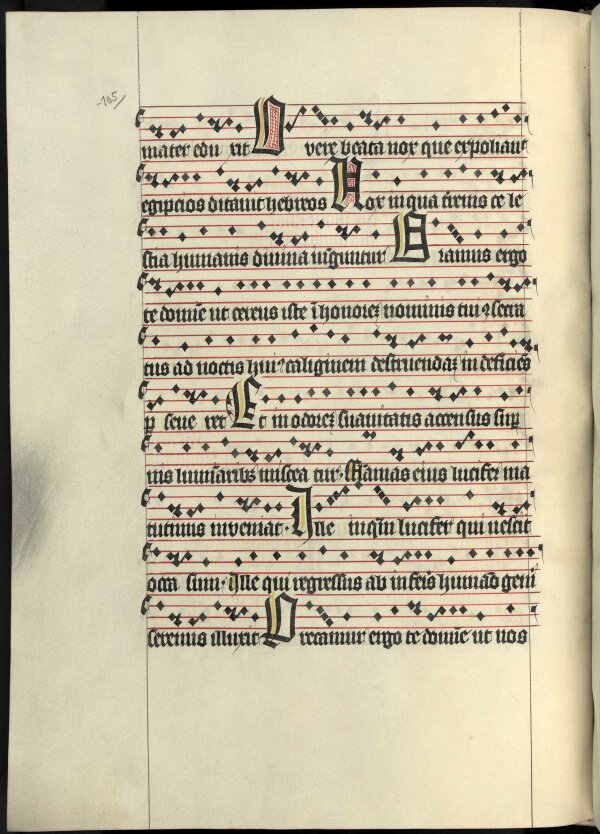 105
mater edu xit O vere beata nox que expoliavit
egiptios ditavit hebreos Nox in qua terrenis ce le
stia humanis divina iunguntur Oramus ergo
te domīe ut cereus iste ī honoreȝ nominis tui ꝯsecra
tus ad noctis huiꝰ caliginem destruendaȝ indeficiēs
ꝑ seve ret Et in odoreȝ suavitatis acceptus suꝑ
nis luminaribȝ miscea tur. Flamas eius lucifer ma
tutinus inveniat. Ille inqm̄ lucifer qui nescit
occa sum. Ille qui regressus ab inferis humāo geni
serenus illuxit Precamur ergo te domīe ut nos